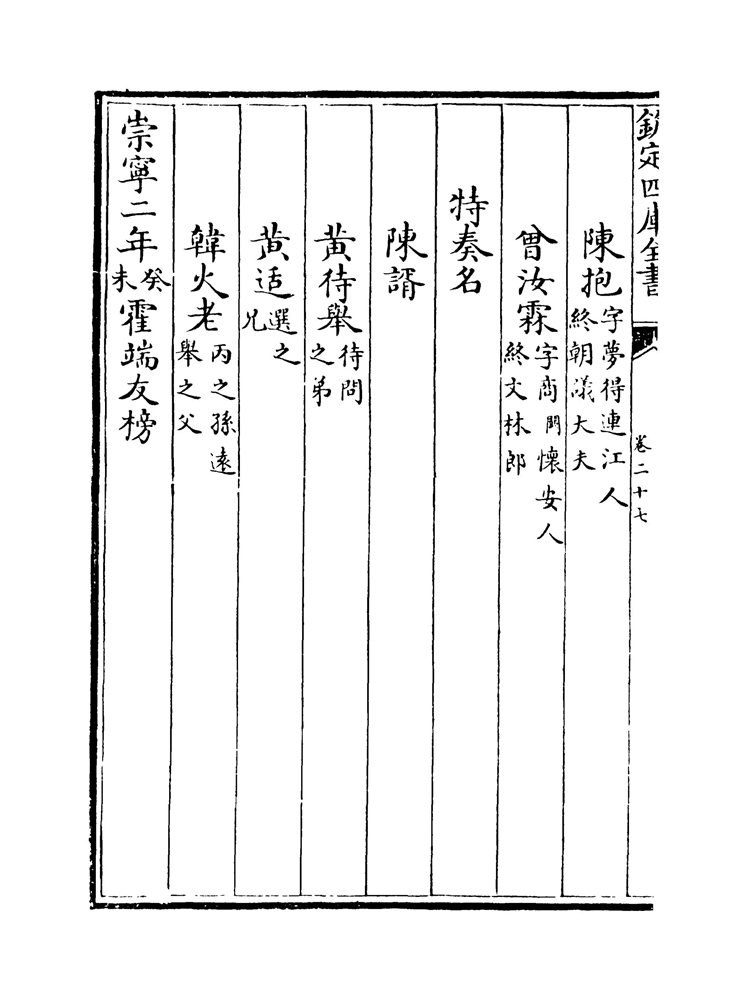 欽定四庫全書 卷二十七
陳抱字夢得連江人終朝議大夫
曾汝霖字商問懷安人終文林郎
特奏名
陳諝
黄待舉待問之弟
黄适選之兄
韓火老丙之孫遠舉之父
崇寧二年癸未霍端友榜